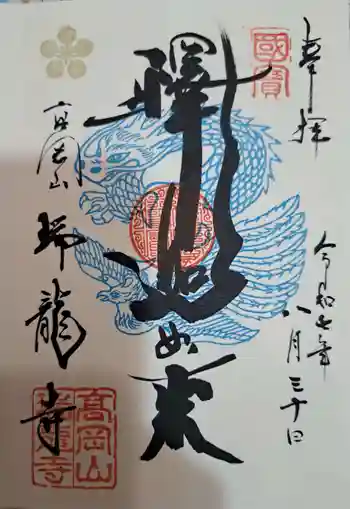 奉拝
令和七年
八月三十日
國寳
釋迦如来
高岡山
瑞龍寺
高岡山
瑞龍寺